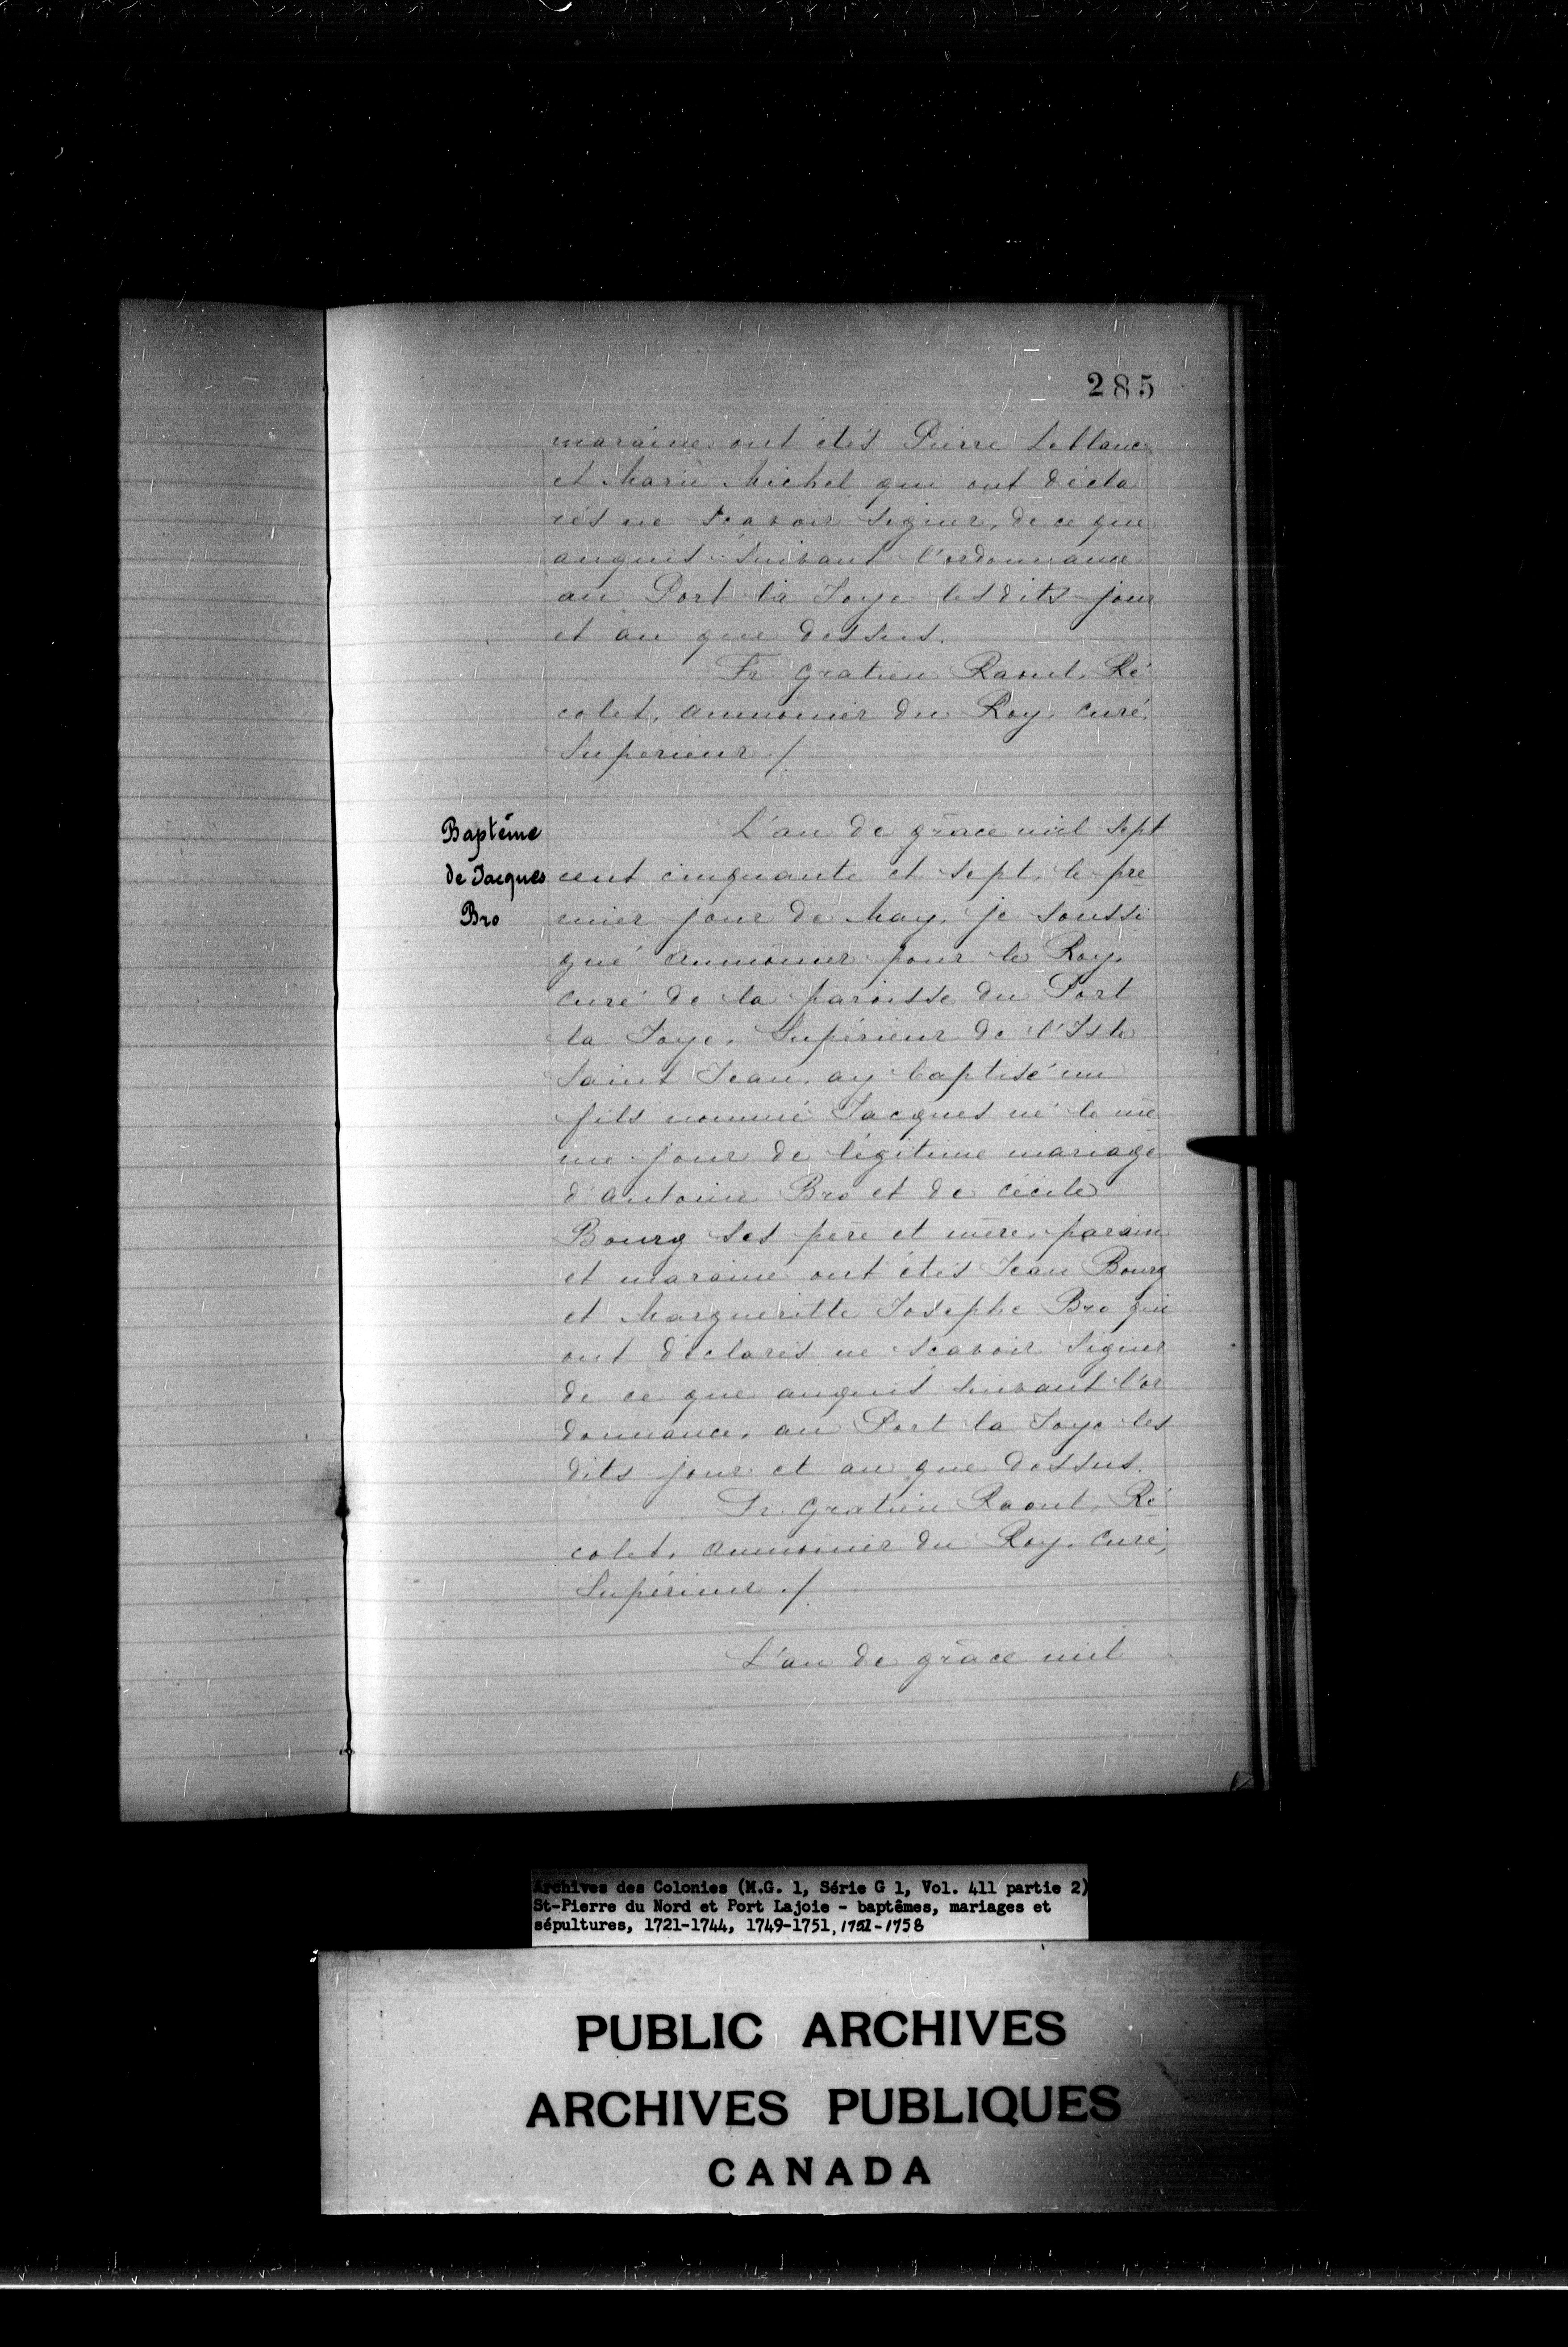 285
maraine ont étés Pierre Leblanc
et Marie Michel qui ont décla
rés ne scavoir signer, de ce que
anquis suivant l'ordonnance
au Port la Joye lesdits jour
et an que dessus.
Fr. Gratien Raoul, Ré
colet, aumonier du Roy, curé,
Supérieur ./.
Baptême
de Jacques
Bro
L'an de grace mil sept
cent cinquante et sept, le pre
mier jour de May, je soussi
gné aumonier pour le Roy,
curé de la paroisse du Port
la Joye, Supérieur de l'Isle
Saint Jean, ay baptisé un
fils nommé Jacques né le mê
me jour de légitime mariage
d'antoine Bro et de cécile
Bourg ses père et mère, parain
et maraine ont étés Jean Bourg
et Margueritte Josephe Bro qui
ont déclarés ne scavoir signer
de ce que anquis suivant l'or
donnance, au Port la Joye les
dits jour et an que dessus.
Fr. Gratien Raoul, Ré
colet, aumonier du Roy, curé,
Supérieur ./.
L'an de grace mil
Archives des Colonies (M.G. 1, Série G 1, Vol. 411 partie 2)
St-Pierre du Nord et Port Lajoie - baptêmes, mariages et
sépultures, 1721-1744, 1749-1751, 1751-1758
PUBLIC ARCHIVES
ARCHIVES PUBLIQUES
CANADA